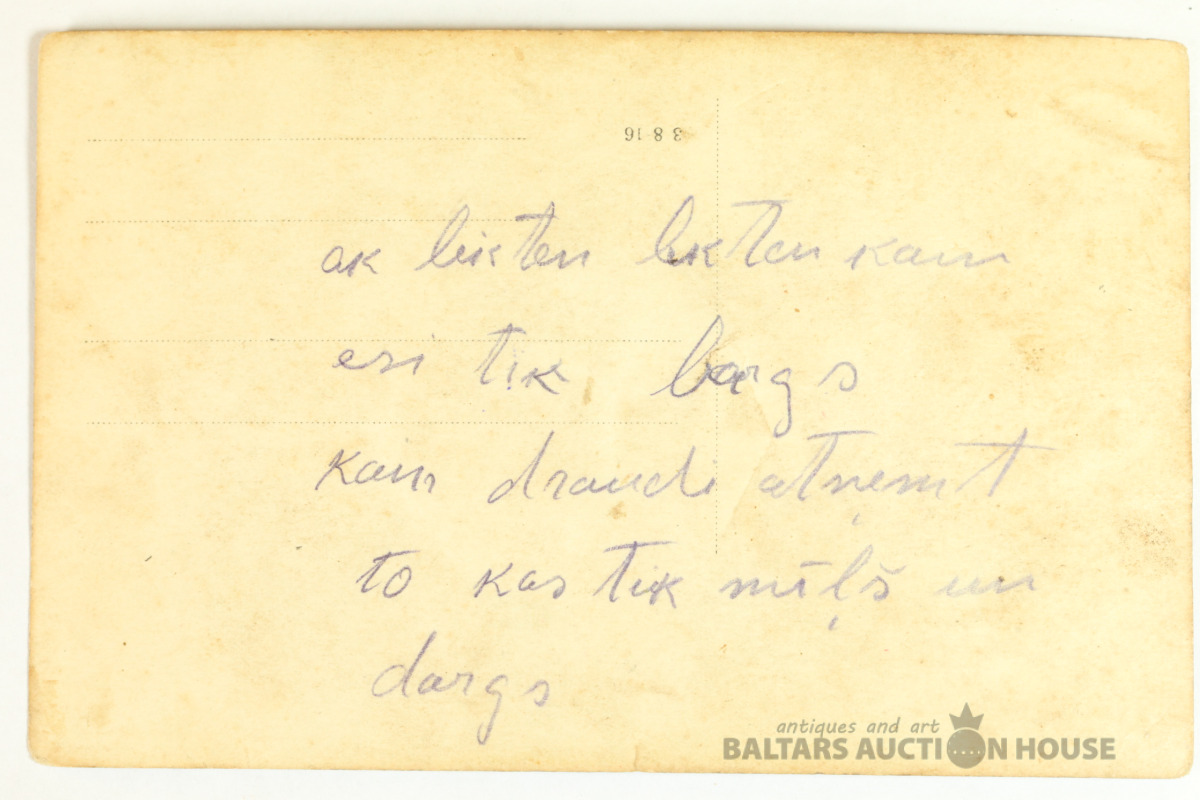 3 8 16
ak likten likten kam
esi tik bargs
kam draudi atņemt
to kas tik mīļš un
dargs
antiques and art
BALTARS AUCTION HOUSE